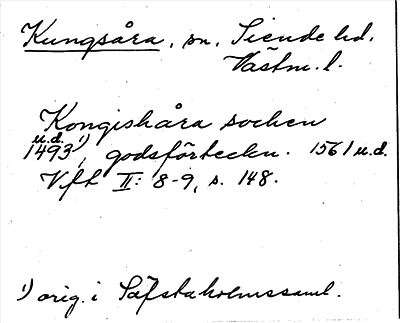 Kungsåra, sn, Siende hd.
Västm. l.
Kongishåra sochen
u.d.
1493¹⁾, godsförteckn. 1561 u.d.
Vft II: 8-9, s. 148.
¹⁾ orig. i Säfstaholmssaml.